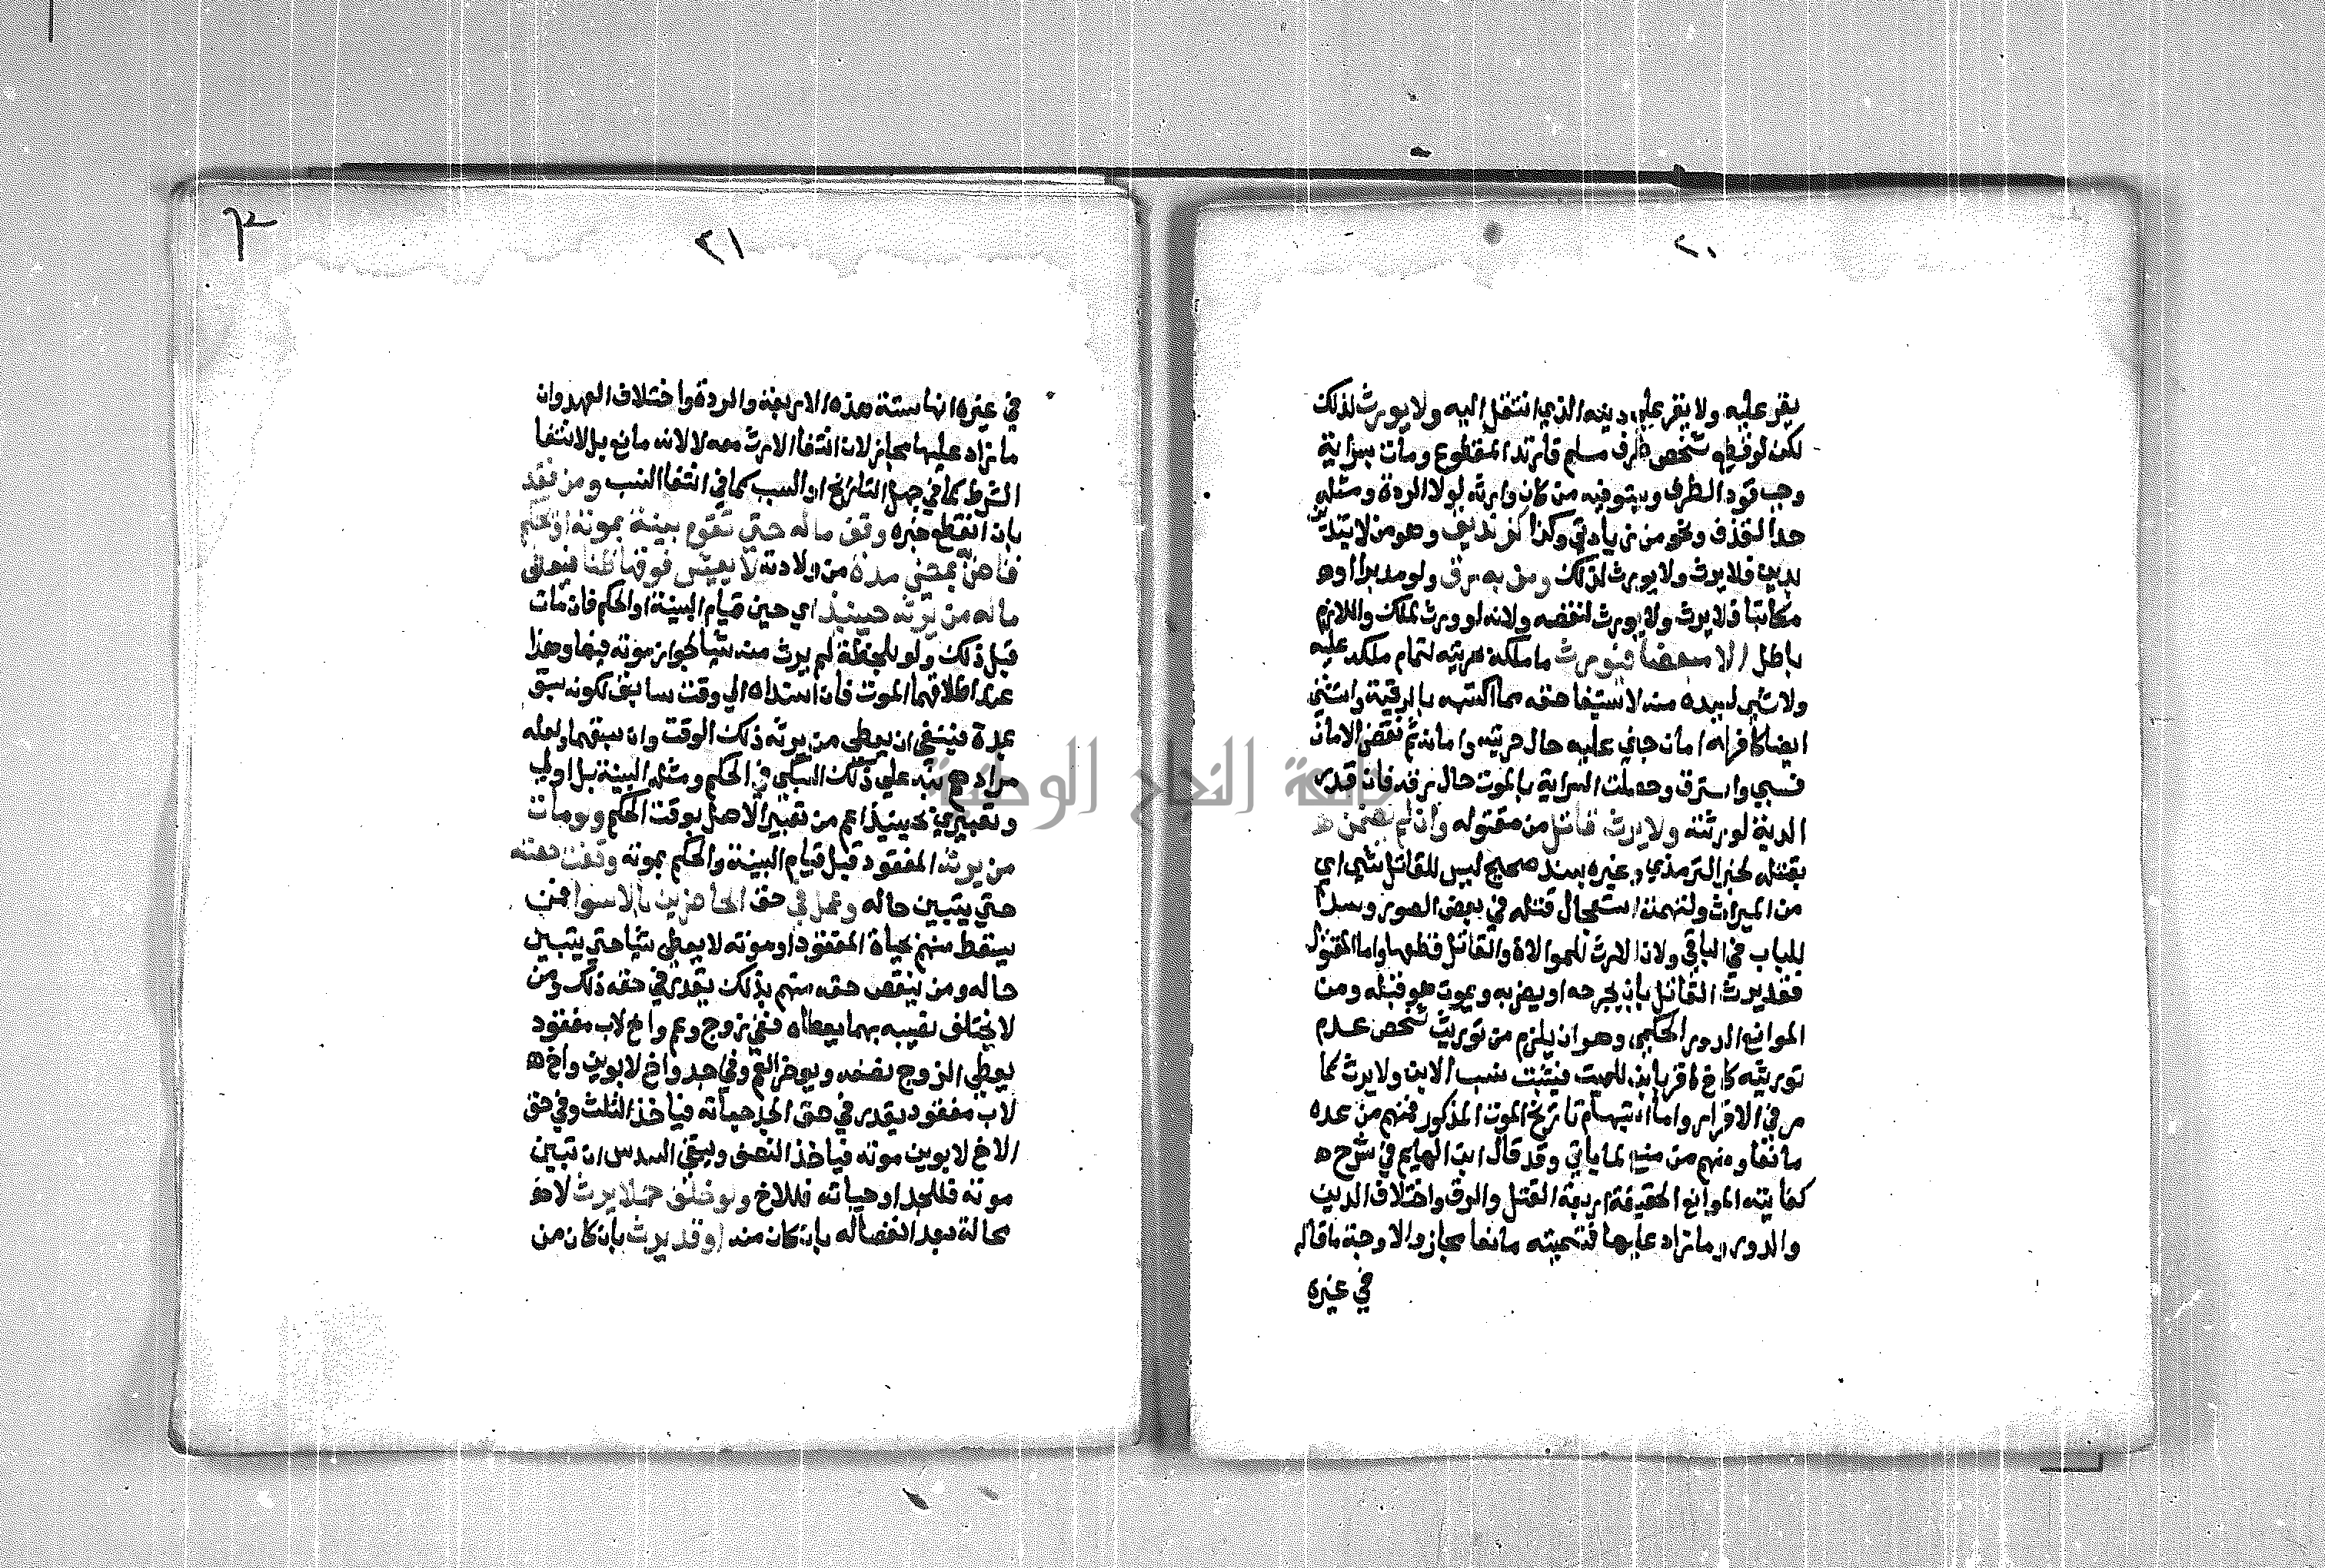 ٢٠
يقر عليه ولا يقر على دينه الذي انتقل اليه ولا يورث لذلك
لكن لو قطع شخص طرف مسلم فارتد المقطوع ومات سراية
وجب قود الطرف ويستوفيه من كان وارثه لولا الردة ومثله
حد القذف ونحو من زيادتي وكذا كزنديق وهو من لا يتدين
بدين فلا يرث ولا يورث لذلك ومن به رق ولو مدبرا او
مكاتبا فلا يرث ولا يورث لنقصه ولانه لو ورث لملك واللازم
باطل الا مبعضا فيورث ما ملكه بحريته لتمام ملكه عليه
ولا شي لسيده منه لاستيفا حقه مما اكتسبه بالرقية واستثني
ايضا كافر له امان جني عليه حال حريته وامانه ثم نقض الامان
فسبي واسترق وحصلت السراية بالموت حال رقه فان قدر
الدية لورثته ولا يرث قاتل من مقتوله وان لم يضمن
بقتله لخبر الترمذي وغيره بسند صحيح ليس للقاتل شي اي
من الميراث ولتهمة استعجال قتله في بعض الصور وسدا
للباب في الباقي ولان الارث للموالاة والقاتل قطعها واما المقتول
فقد يرث القاتل بان يجرحه او يضربه ويموت هو قبله ومن
الموانع الدور الحكمي وهو ان يلزم من توريث شخص عدم
توريثه كاخ اقر بابن للميت فيثبت نسب الابن ولا يرث كما
مر في الاقرار واما استبهام تاريخ الموت المذكور فمنهم من عده
مانعا ومنهم من منع لما ياتي وقد قال ابن الهايم في شرح
كفايته الموانع الحقيقة اربعة القتل والرق واختلاف الدين
والدور وما زاد عليها فتسميته مانعا مجاز والاوجة ما قاله
في غيره
٢١
في غيره انها ستة هذه الاربعة والردة واختلاف العهد وان
ما زاد عليها مجاز لان انتفا الارث معه لا لانه مانع بل لانتفا
الشرط كما في جهل التاريخ او السبب كما في انتفا النسب ومن فقد
بان انقطع خبره وقف ماله حتى تقوم بينة بموته او يحكم
قاض بمضي مدة من ولادته لا يعيش فوقها ظنا فيعطى
ماله من يرثه حينيذ اي حين قيام البينة او الحكم فان مات
قبل ذلك ولو بلحظة لم يرث منه شيا لجواز موته فيها وهذا
عند اطلاقهما الموت فان اسنداه الى وقت سابق لكونه سبق
بمدة فينبغي ان يعطى من يرثه ذلك الوقت وان سبقهما ولعله
مرادهم نبه على ذلك السبكي في الحكم ومثله البينة بل اولى
وتعبيري بحينيذ اعم من تعبير الاصل بوقت الحكم ولو مات
من يرثه المفقود قبل قيام البينة والحكم بموته وقفت حصته
حتى يتبين حاله وعمل في حق الحاضرين بالاسوا فمن
يسقط منهم بحياة المفقود او موته لا يعطى شيا حتى يتبين
حاله ومن ينقص حقه منهم بذلك يقدر في حقه ذلك ومن
لا يختلف نصيبه بهما يعطاه ففي زوج وعم واخ لاب مفقود
يعطى الزوج نصفه ويوخر العم وفي جد واخ لابوين واخ
لاب مفقود يقدر في حق الجد حياته فياخذ الثلث وفي حق
الاخ لابوين موته فياخذ النصف ويبقى السدس ان تبين
موته فللجد او حياته فللاخ ولو خلف حملا يرث لا
محالة بعد انفصاله بان كان منه او قد يرث بان كان من
جامعة النجاح الوطنية